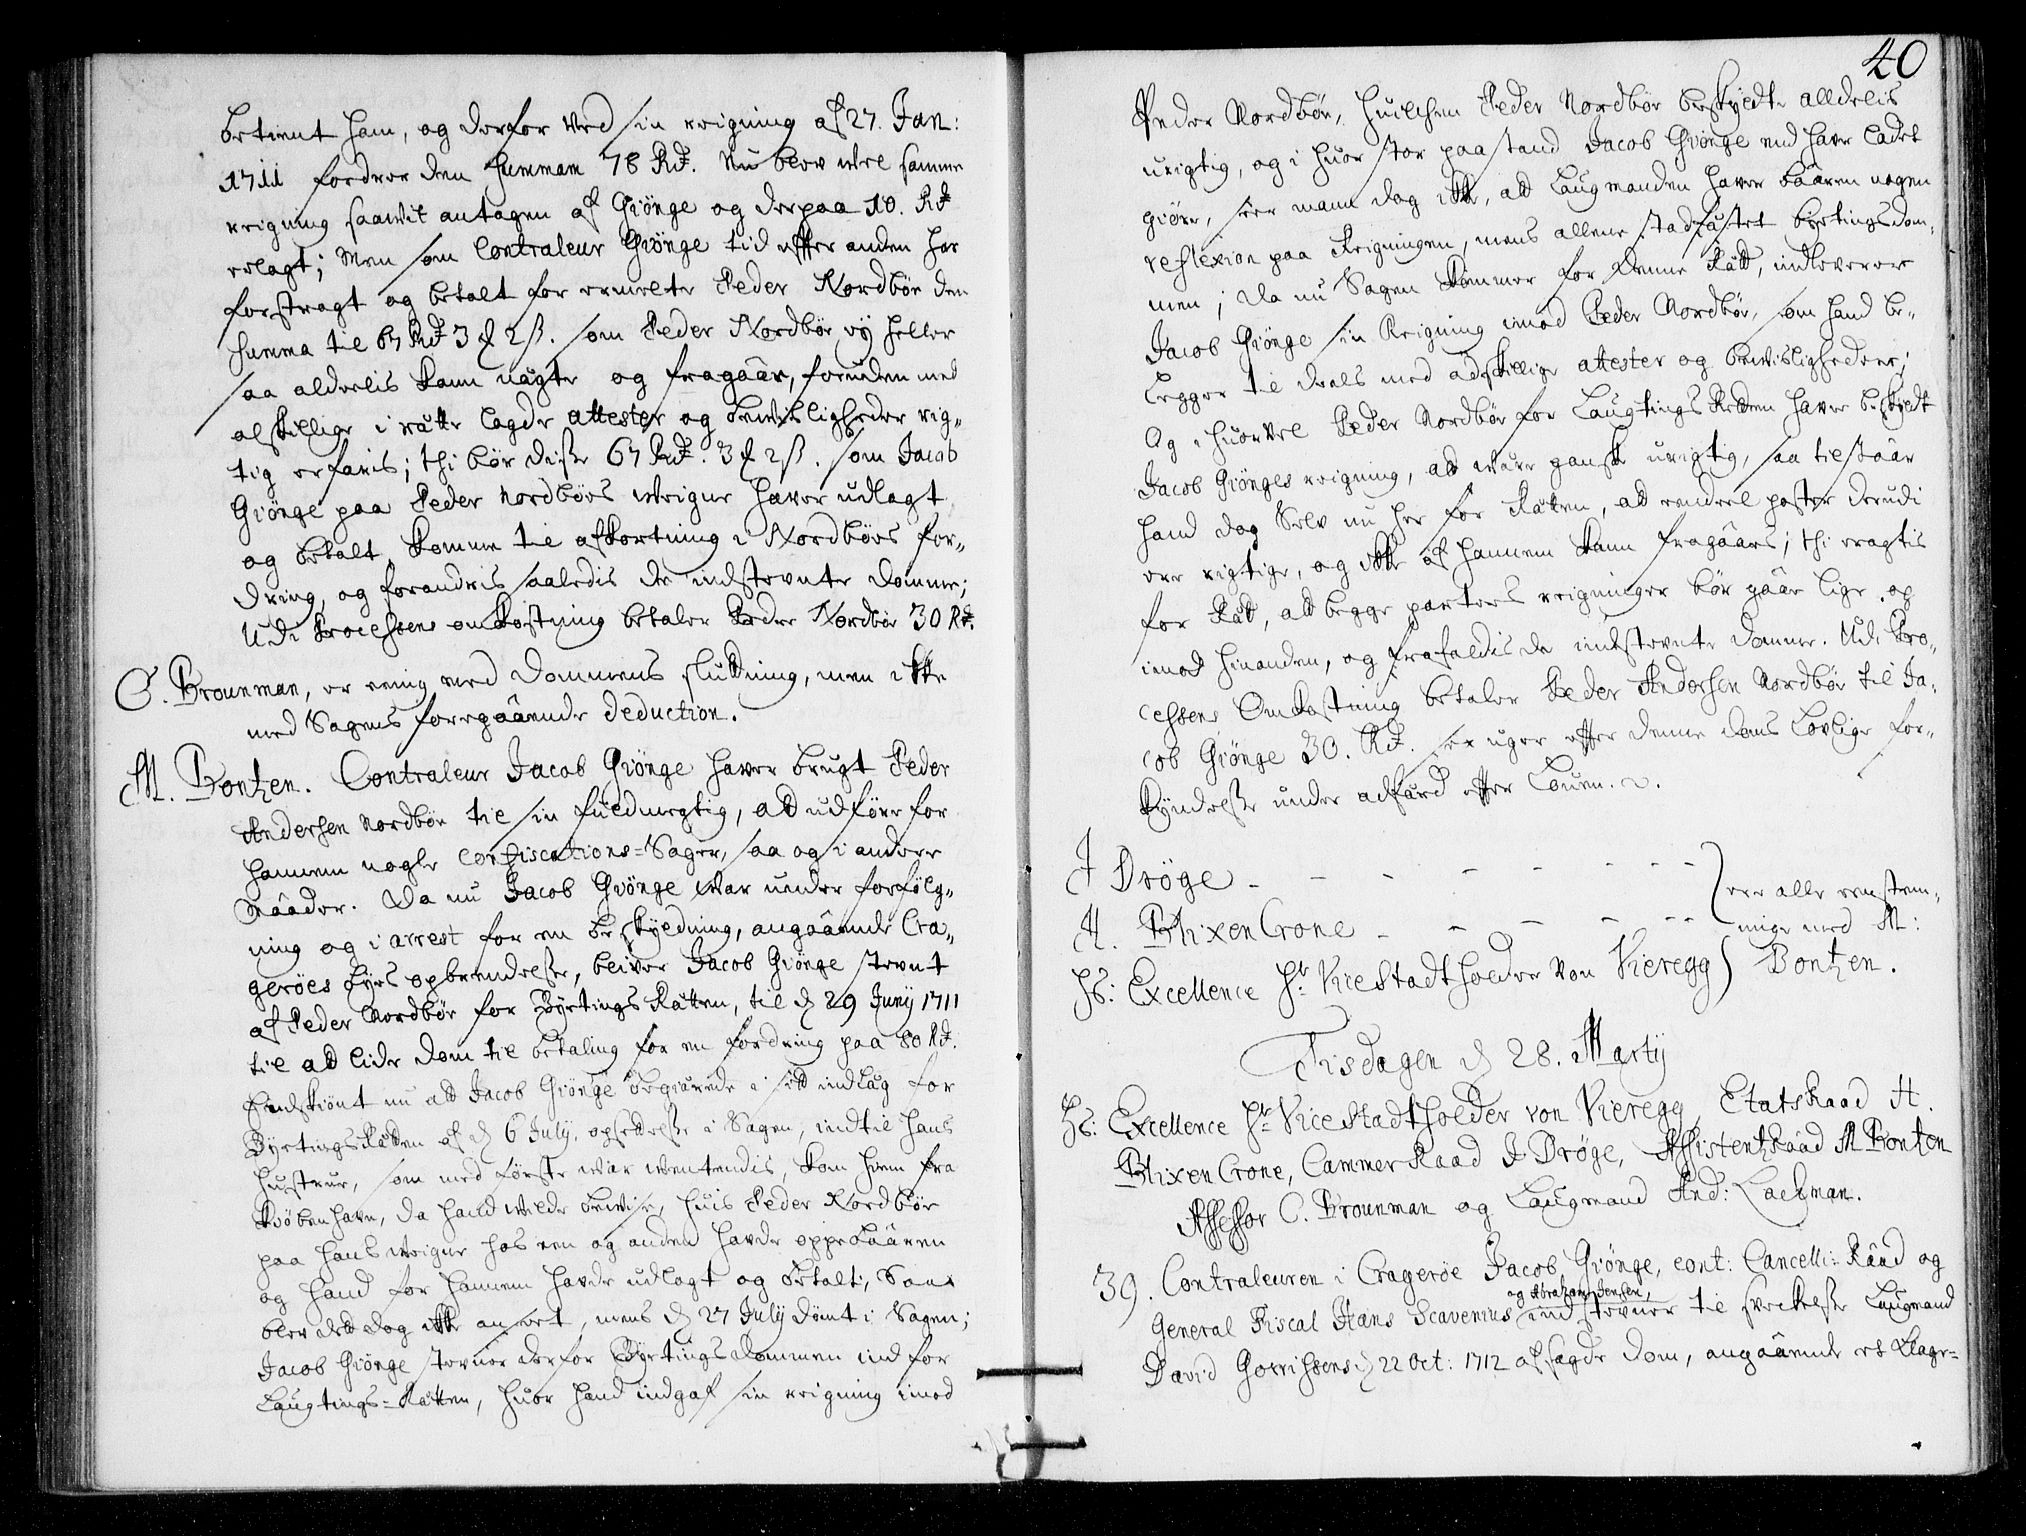 betient ham, og derfor ved sin reigning af 27. Jan:
1711 fordrer den Summam 78 Rd. Nu blev vel samme
reigning saavit antagen af Giönge og derpaa 10. Rd
erlagt; Men som Contraleur Giönge tid effter anden har
forstragt og betalt for ermelte Peder Nordbör den
Summa til 67 Rd 3 ₰ 2 ß. som Peder Nordböe ey heller
saa alderlis kann nägte og fragaär, foruden med
alskillige i rätte lagde attester og beviisligheder rig-
tig erfaris; thi bör disse 67 Rd. 3 ₰ 2 ß. som Jacob
Giönge paa Peder Nordbörs weigne haver udlagt
og betalt komme til afkortning i Nordbörs for-
dring, og forandris saaledis de indstevnte Domme;
Udi Processens omkostning betaler Peder Nordbör 30 Rd.
C. Brounman, er eenig med Dommens slutning, men ikke
med Sagens foregaäende deduction.
M. Bontzen. Contraleur Jacob Giönge haver brugt Peder
Andersen Nordbör til sin fuldmegtig, att udföre for
hannem nogle Confiscations-Sager, saa og i andere
Maader. Da nu Jacob Giönge war under forfölg-
ning og i arrest for en beskyldning, angaaende Cra-
geröes byes opbrendelse, bliver Jacob Giönge stevnt
af Peder Nordbör for Byetings Rätten, til d 29 Junij 1711
til att lide dom til betaling for en fordring paa 80 Rd.
Endskiönt nu att Jacob Giönge begierede i sitt indlæg for
ByetingsRätten af d 6 July, opsettelse i Sagen, indtil hans
hustrue, som med förste war wentendis, kom hiem fra
Kiöbenhavn, da hand wilde bevise, huis Peder Nordbör
paa hans weigne hos een og anden havde oppebaären
og hand for hannem havde udlagt og betalt; Saa
blev dett dog ikke anseet, mens d 27 July dömt i Sagen;
Jacob Giönge stevner derfor Byetings dommen ind for
Laugtings-Rätten, huor hand indgaf sin reigning imod
40
Peder Nordbör, huilchen Peder Nordbör beskyldte alldelis
urigtig, og i huor stor paastand Jacob Giönge end have ladet
giöre, seer mann dog ikke, att Laugmanden haver baären nogen
reflexion paa Reigningen, mens allene stadfästet byetingsdom-
men; Da nu Sagen kommer for denne Rätt, indleverer
Jacob Giönge sin Reigning imod Peder Nordbör, som hand be-
legger til deels med adskillige attester og beviisligheder;
Og ihuorvel Peder Nordbör for Laugtings Retten haver beskyldt
Jacob Giönges reigning, att være gansk urigtig, saa tilstaär
hand dog Selv nu her for Rätten, att eendeel poster derudi
ere rigtige, og ikke af hannem kann fragaaes; thi eragtis
for Rätt, att begge parters reigninger bör gaär lige op
imod hinanden, og frafaldis de indstevnte Domme. Udi Pro-
cessens Omkostning betaler Peder Andersen Nordbör til Ja-
cob Giönge 30. Rd. sex uger effter denne doms Lovlige for-
kyndelse under adfärd effter Louen.
J Dröge - - - - - - -
H. BlixenCrone - - - - - ere alle eenstem-
mige med M:
Hs: Excellence Hr. ViceStadtholder von Vieregg Bontzen.
Tisdagen d 28. Martij
Hs: Excellence Hr. ViceStadtholder von Vieregg, EtatsRaad H.
BlixenCrone, CammerRaad J Dröge, AssistentzRaad M Bontzen
Assessor C. Brounman og Laugmand And: Lachman.
39. Contraleuren i Crageröe Jacob Giönge, cont: Cancelli: Raad og
og Abraham Jensen,
General Fiscal Hans Scavenius indstevner til svekelse Laugmand
David Gorrissens d 22 Oct: 1712 afsagde dom, angaaende et klage-